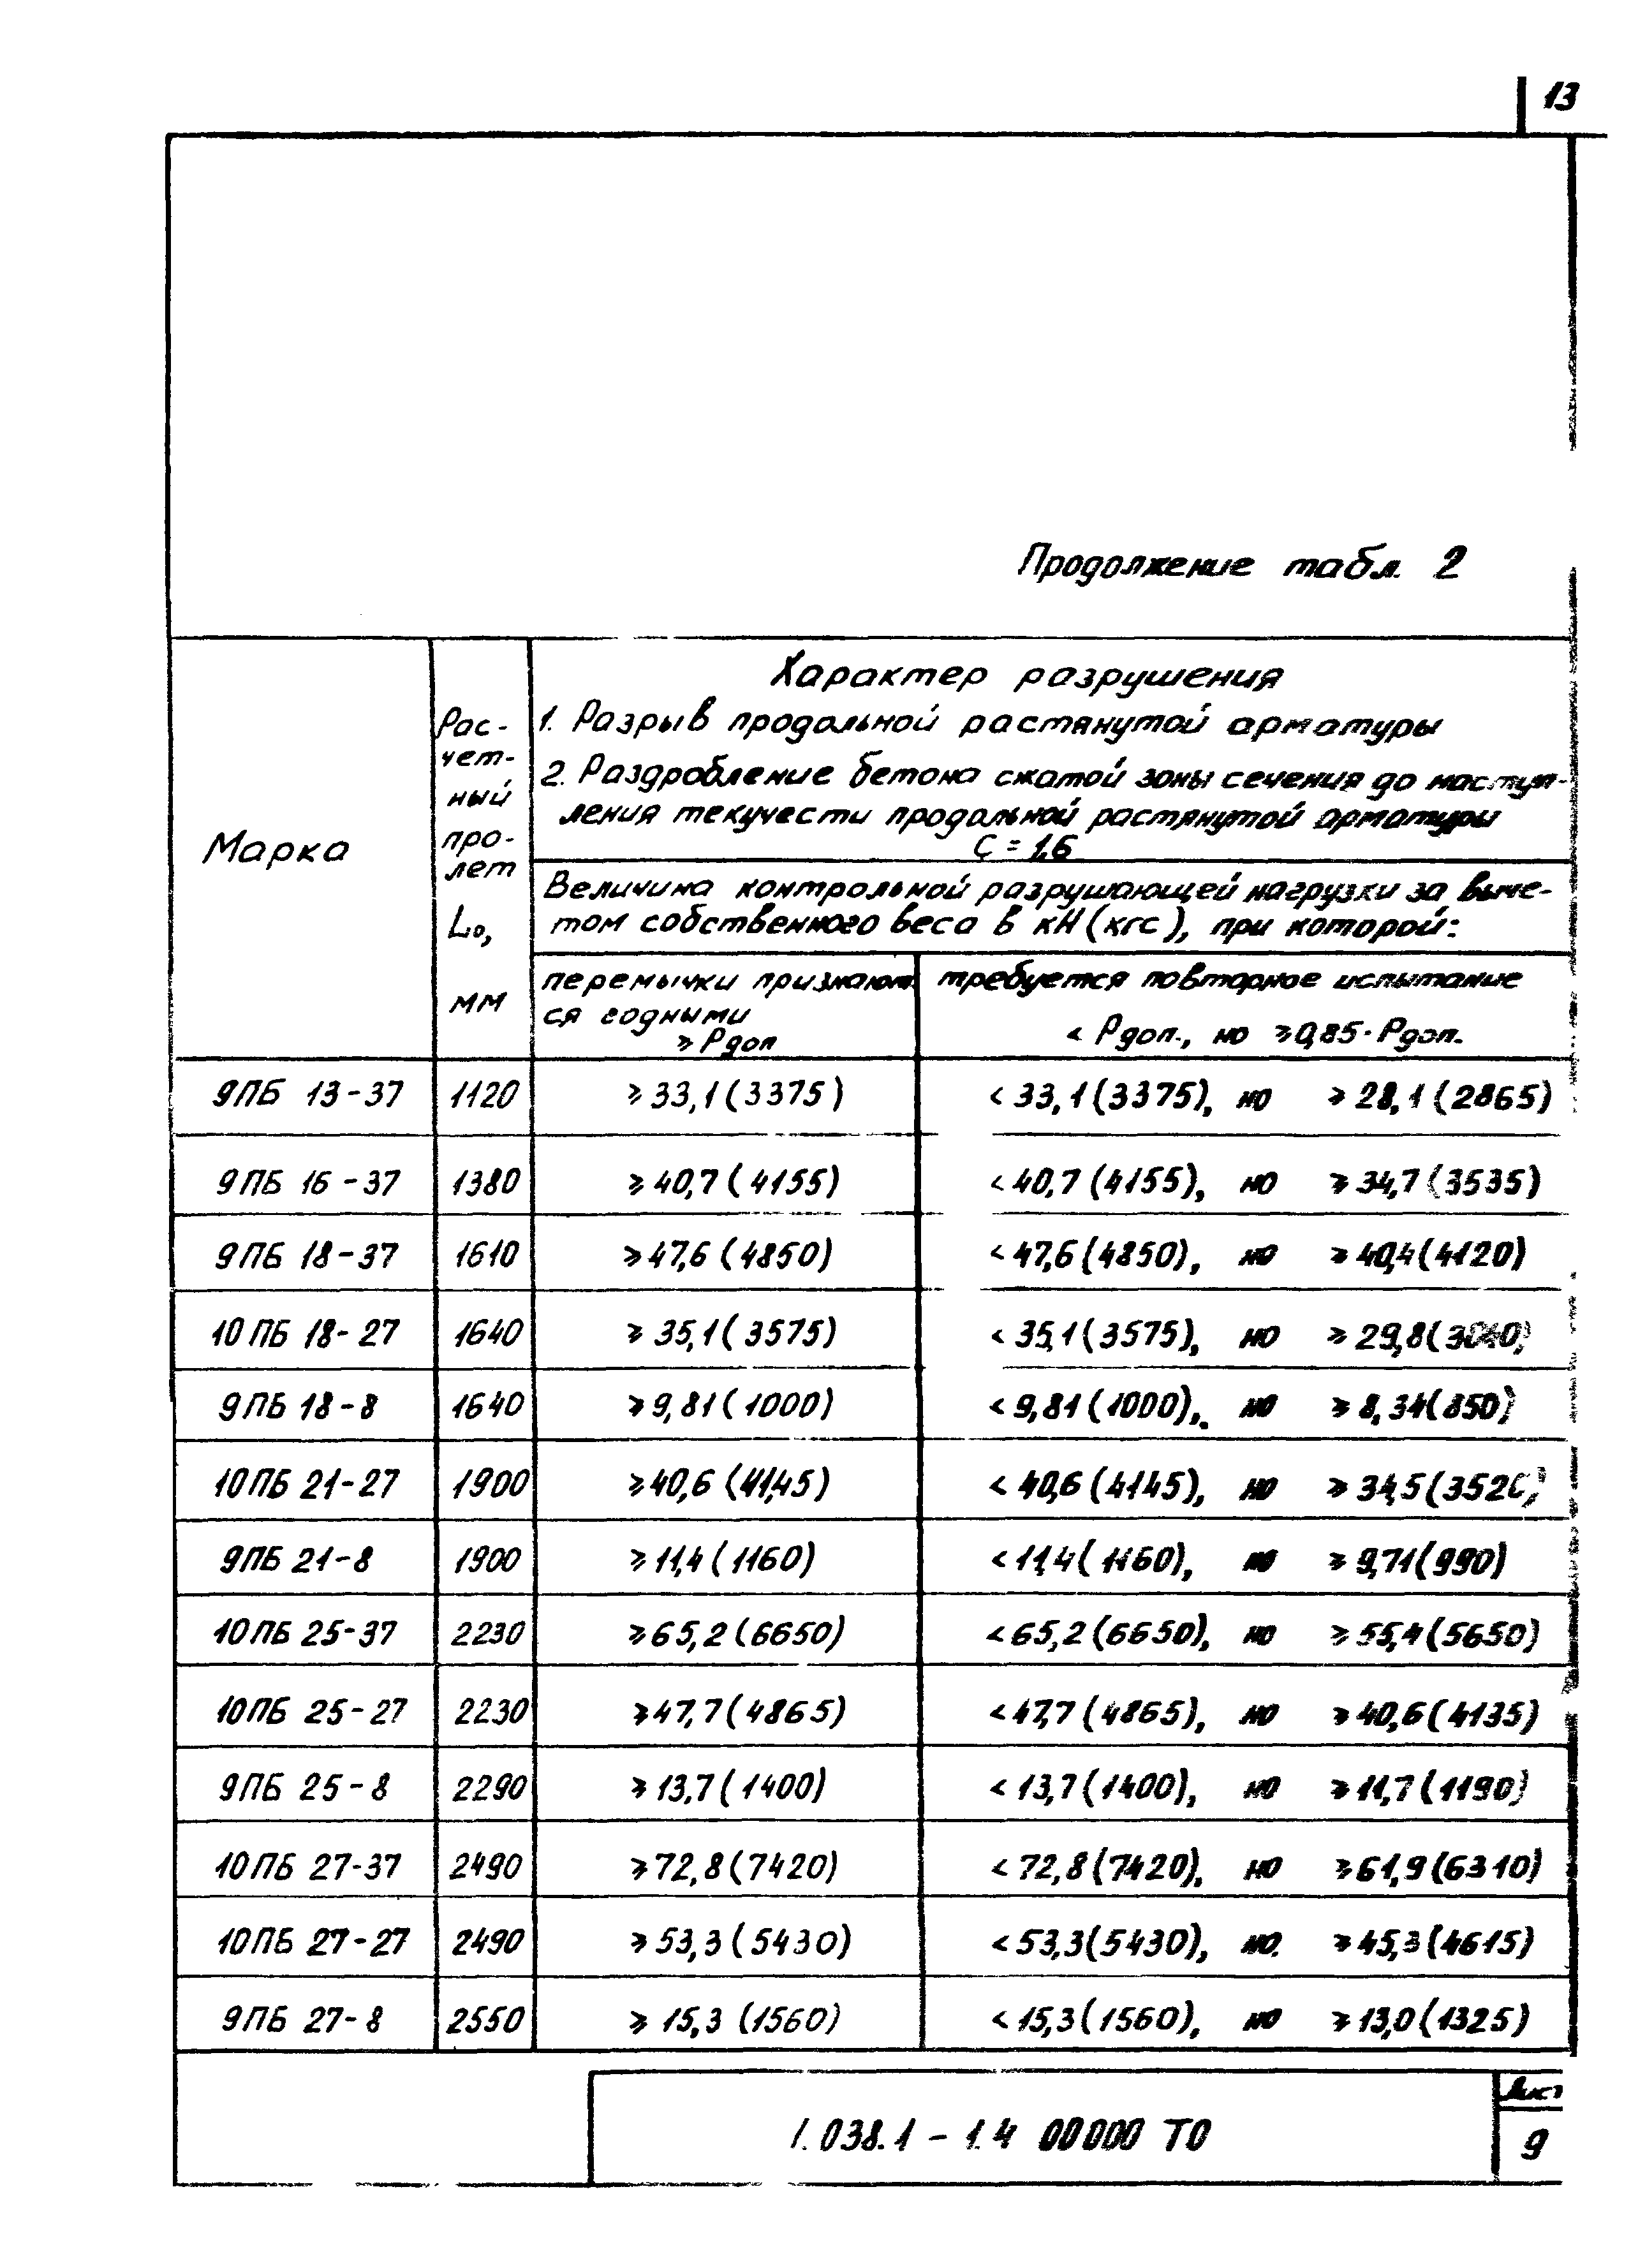 13
Продолжение табл. 2
Марка
Рас-
чет-
ный
про-
лет
L₀,
мм
Характер разрушения
1. Разрыв продольной растянутой арматуры
2. Раздробление бетона сжатой зоны сечения до наступ-
ления текучести продольной растянутой арматуры
C = 1,6
Величина контрольной разрушающей нагрузки за выче-
том собственного веса в кН (кгс), при которой:
перемычки признают-
ся годными
≥ Рдоп
требуется повторное испытание
< Рдоп., но ≥0,85·Рдоп.
9ПБ 13-37 1120 ≥33,1(3375) <33,1(3375), но ≥28,1(2865)
9ПБ 16-37 1380 ≥40,7(4155) <40,7(4155), но ≥34,7(3535)
9ПБ 18-37 1610 ≥47,6(4850) <47,6(4850), но ≥40,4(4120)
10ПБ 18-27 1640 ≥35,1(3575) <35,1(3575), но ≥29,8(3040)
9ПБ 18-8 1640 ≥9,81(1000) <9,81(1000), но ≥8,34(850)
10ПБ 21-27 1900 ≥40,6(4145) <40,6(4145), но ≥34,5(3520)
9ПБ 21-8 1900 ≥11,4(1160) <11,4(1160), но ≥9,71(990)
10ПБ 25-37 2230 ≥65,2(6650) <65,2(6650), но ≥55,4(5650)
10ПБ 25-27 2230 ≥47,7(4865) <47,7(4865), но ≥40,6(4135)
9ПБ 25-8 2290 ≥13,7(1400) <13,7(1400), но ≥11,7(1190)
10ПБ 27-37 2490 ≥72,8(7420) <72,8(7420), но ≥61,9(6310)
10ПБ 27-27 2490 ≥53,3(5430) <53,3(5430), но ≥45,3(4615)
9ПБ 27-8 2550 ≥15,3(1560) <15,3(1560), но ≥13,0(1325)
1.038.1-1.4 00000 ТО
Лист
9